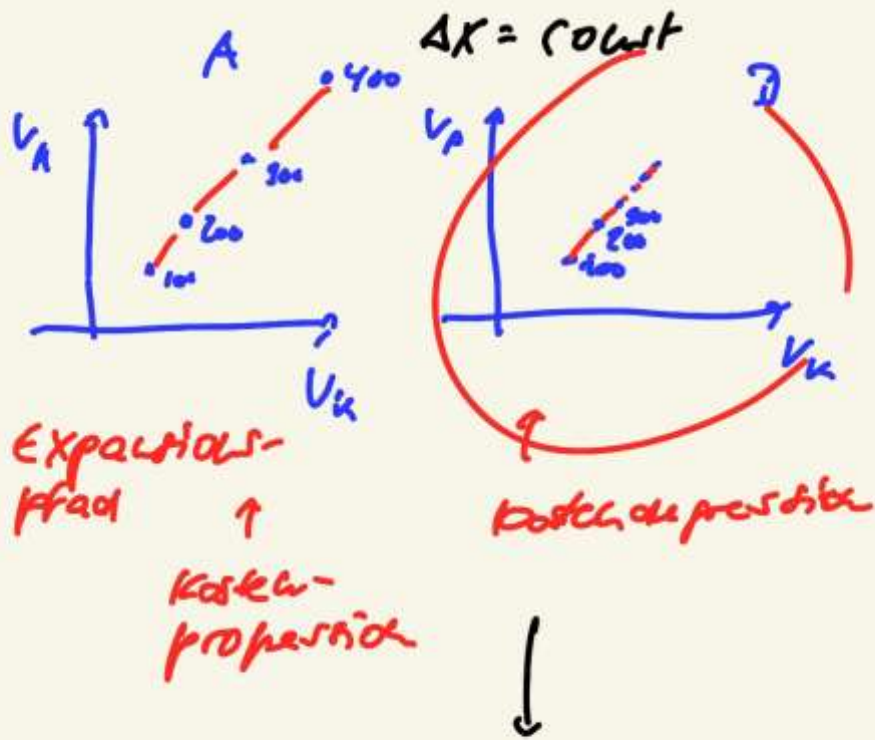 A
ΔX = const
D
V_A
400
300
200
100
V_k
V_A
300
200
100
V_k
Expansions-
pfad
↑
Kosten-
progression
↑
Kostendepression
↓